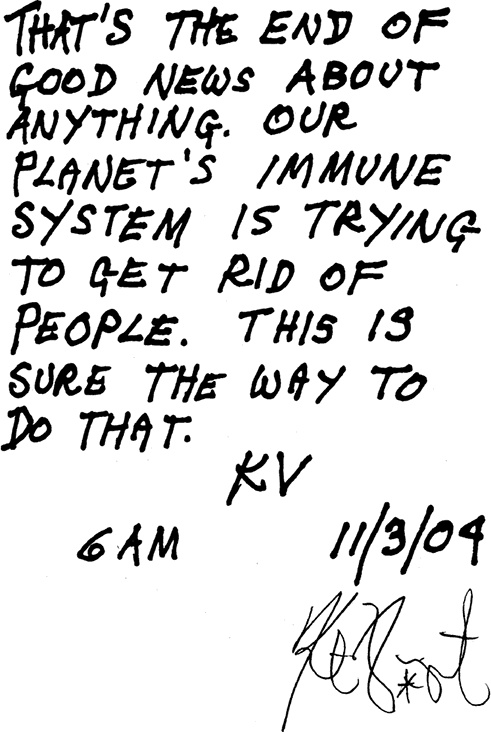 THAT'S THE END OF
GOOD NEWS ABOUT
ANYTHING. OUR
PLANET'S IMMUNE
SYSTEM IS TRYING
TO GET RID OF
PEOPLE. THIS IS
SURE THE WAY TO
DO THAT.
KV
6 AM 11/3/04